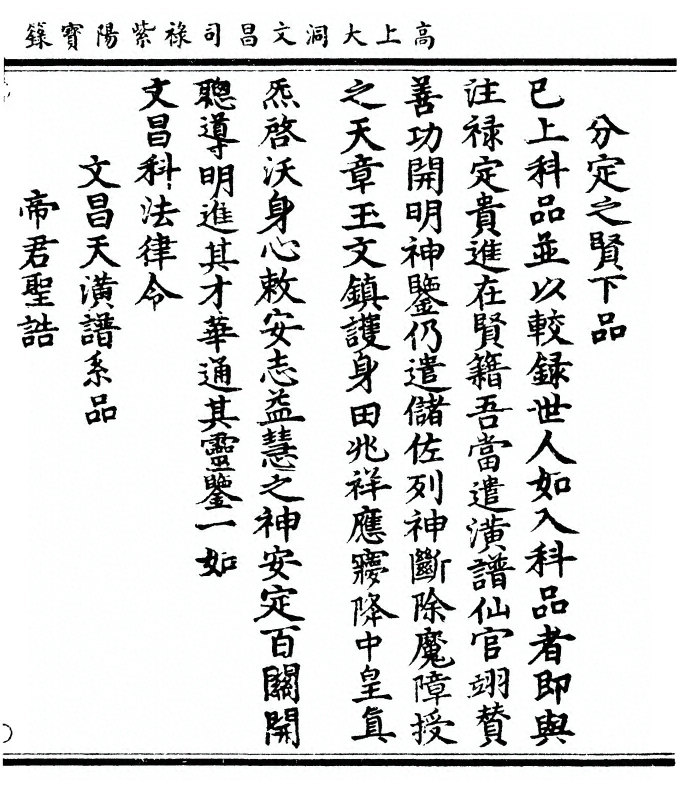 高上大洞文昌司祿紫陽寶籙
分定之賢下品
已上科品並以較録世人如入科品者即與
注禄定貴進在賢籍吾當遣潢譜仙官翊賛
善功開明神鑒仍遣儲佐列神斷除魔障授
之天章玉文鎮護身田兆祥應夣降中皇真
炁啓沃身心敕安志益慧之神安定百關開
聰導明進其才華通其靈鑒一如
文昌科法律令
文昌天潢譜系品
帝君聖誥